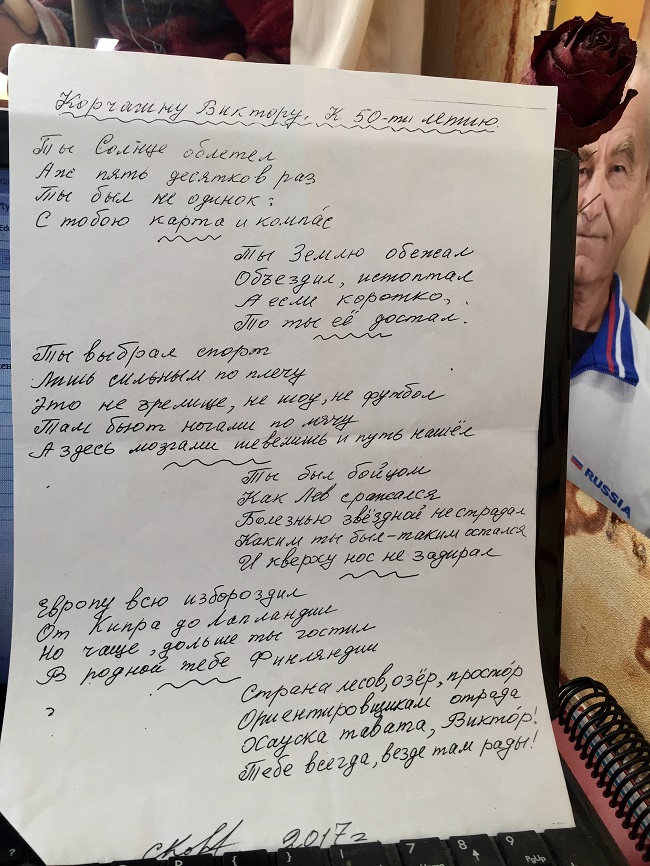 Корчагину Виктору. К 50-ти летию.
Ты Солнце облетел
Аж пять десятков раз
Ты был не одинок:
С тобою карта и компас
Ты Землю обежал
Объездил, истоптал
А если коротко,
То ты её достал.
Ты выбрал спорт
Лишь сильным по плечу
Это не зрелище, не шоу, не футбол
Там бьют ногами по мячу
А здесь мозгами шевелишь и путь нашёл
Ты был бойцом
Как Лев сражался
Болезнью звёздной не страдал
Каким ты был-таким остался
И кверху нос не задирал
Европу всю избороздил
От Кипра до Лапландии
Но чаще, дольше ты гостил
В родной тебе Финляндии
Страна лесов, озёр, простор
Ориентировщикам отрада
Хауска тавата, Виктор!
Тебе всегда, везде там рады!
2017г
RUSSIA
7
8
9
PgUp